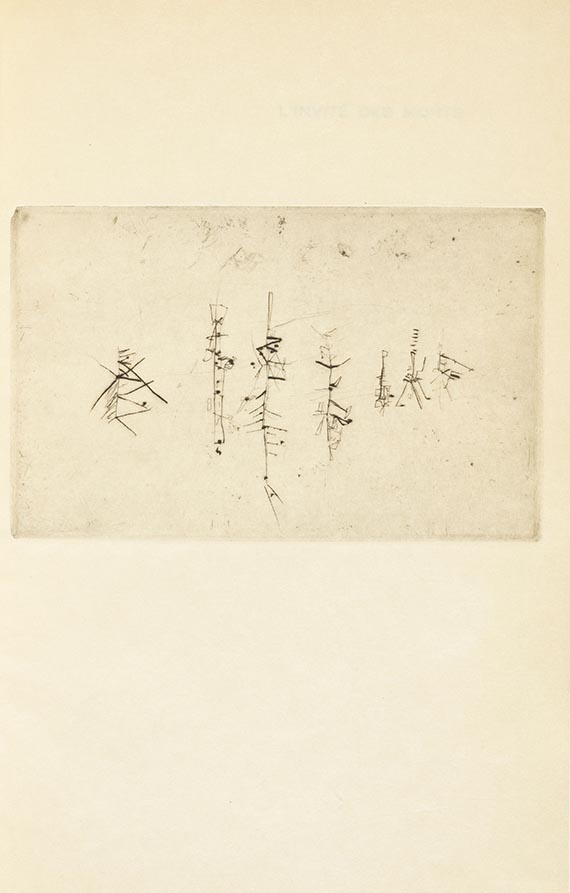 L'INVITÉ DES MORTS